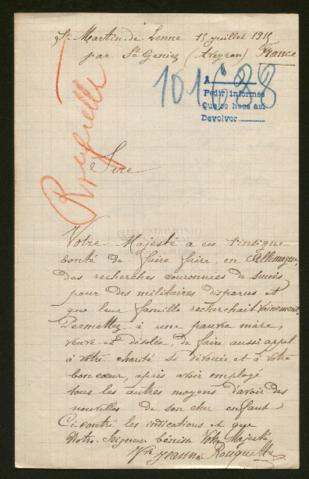 St Martin de Lenne 15 juillet 1915
par St Geniez (Aveyron) France
101688
A
Pedir informes
Devolver
Rouquette
Sire
Votre Majesté a eu l'insigne
bonté de faire faire, en Allemagne,
des recherches couronnées de succès
pour des militaires disparus et
que leur famille recherchait vainement.
Permettez à une pauvre mère,
veuve et désolée, de faire aussi appel
à votre charité si dévouée et à votre
bon cœur, après avoir employé
tous les autres moyens d'avoir des
nouvelles de son cher enfant
Ci-contre les indications et que
Notre Seigneur bénisse Votre Majesté
Vve Jeanne Rouquette